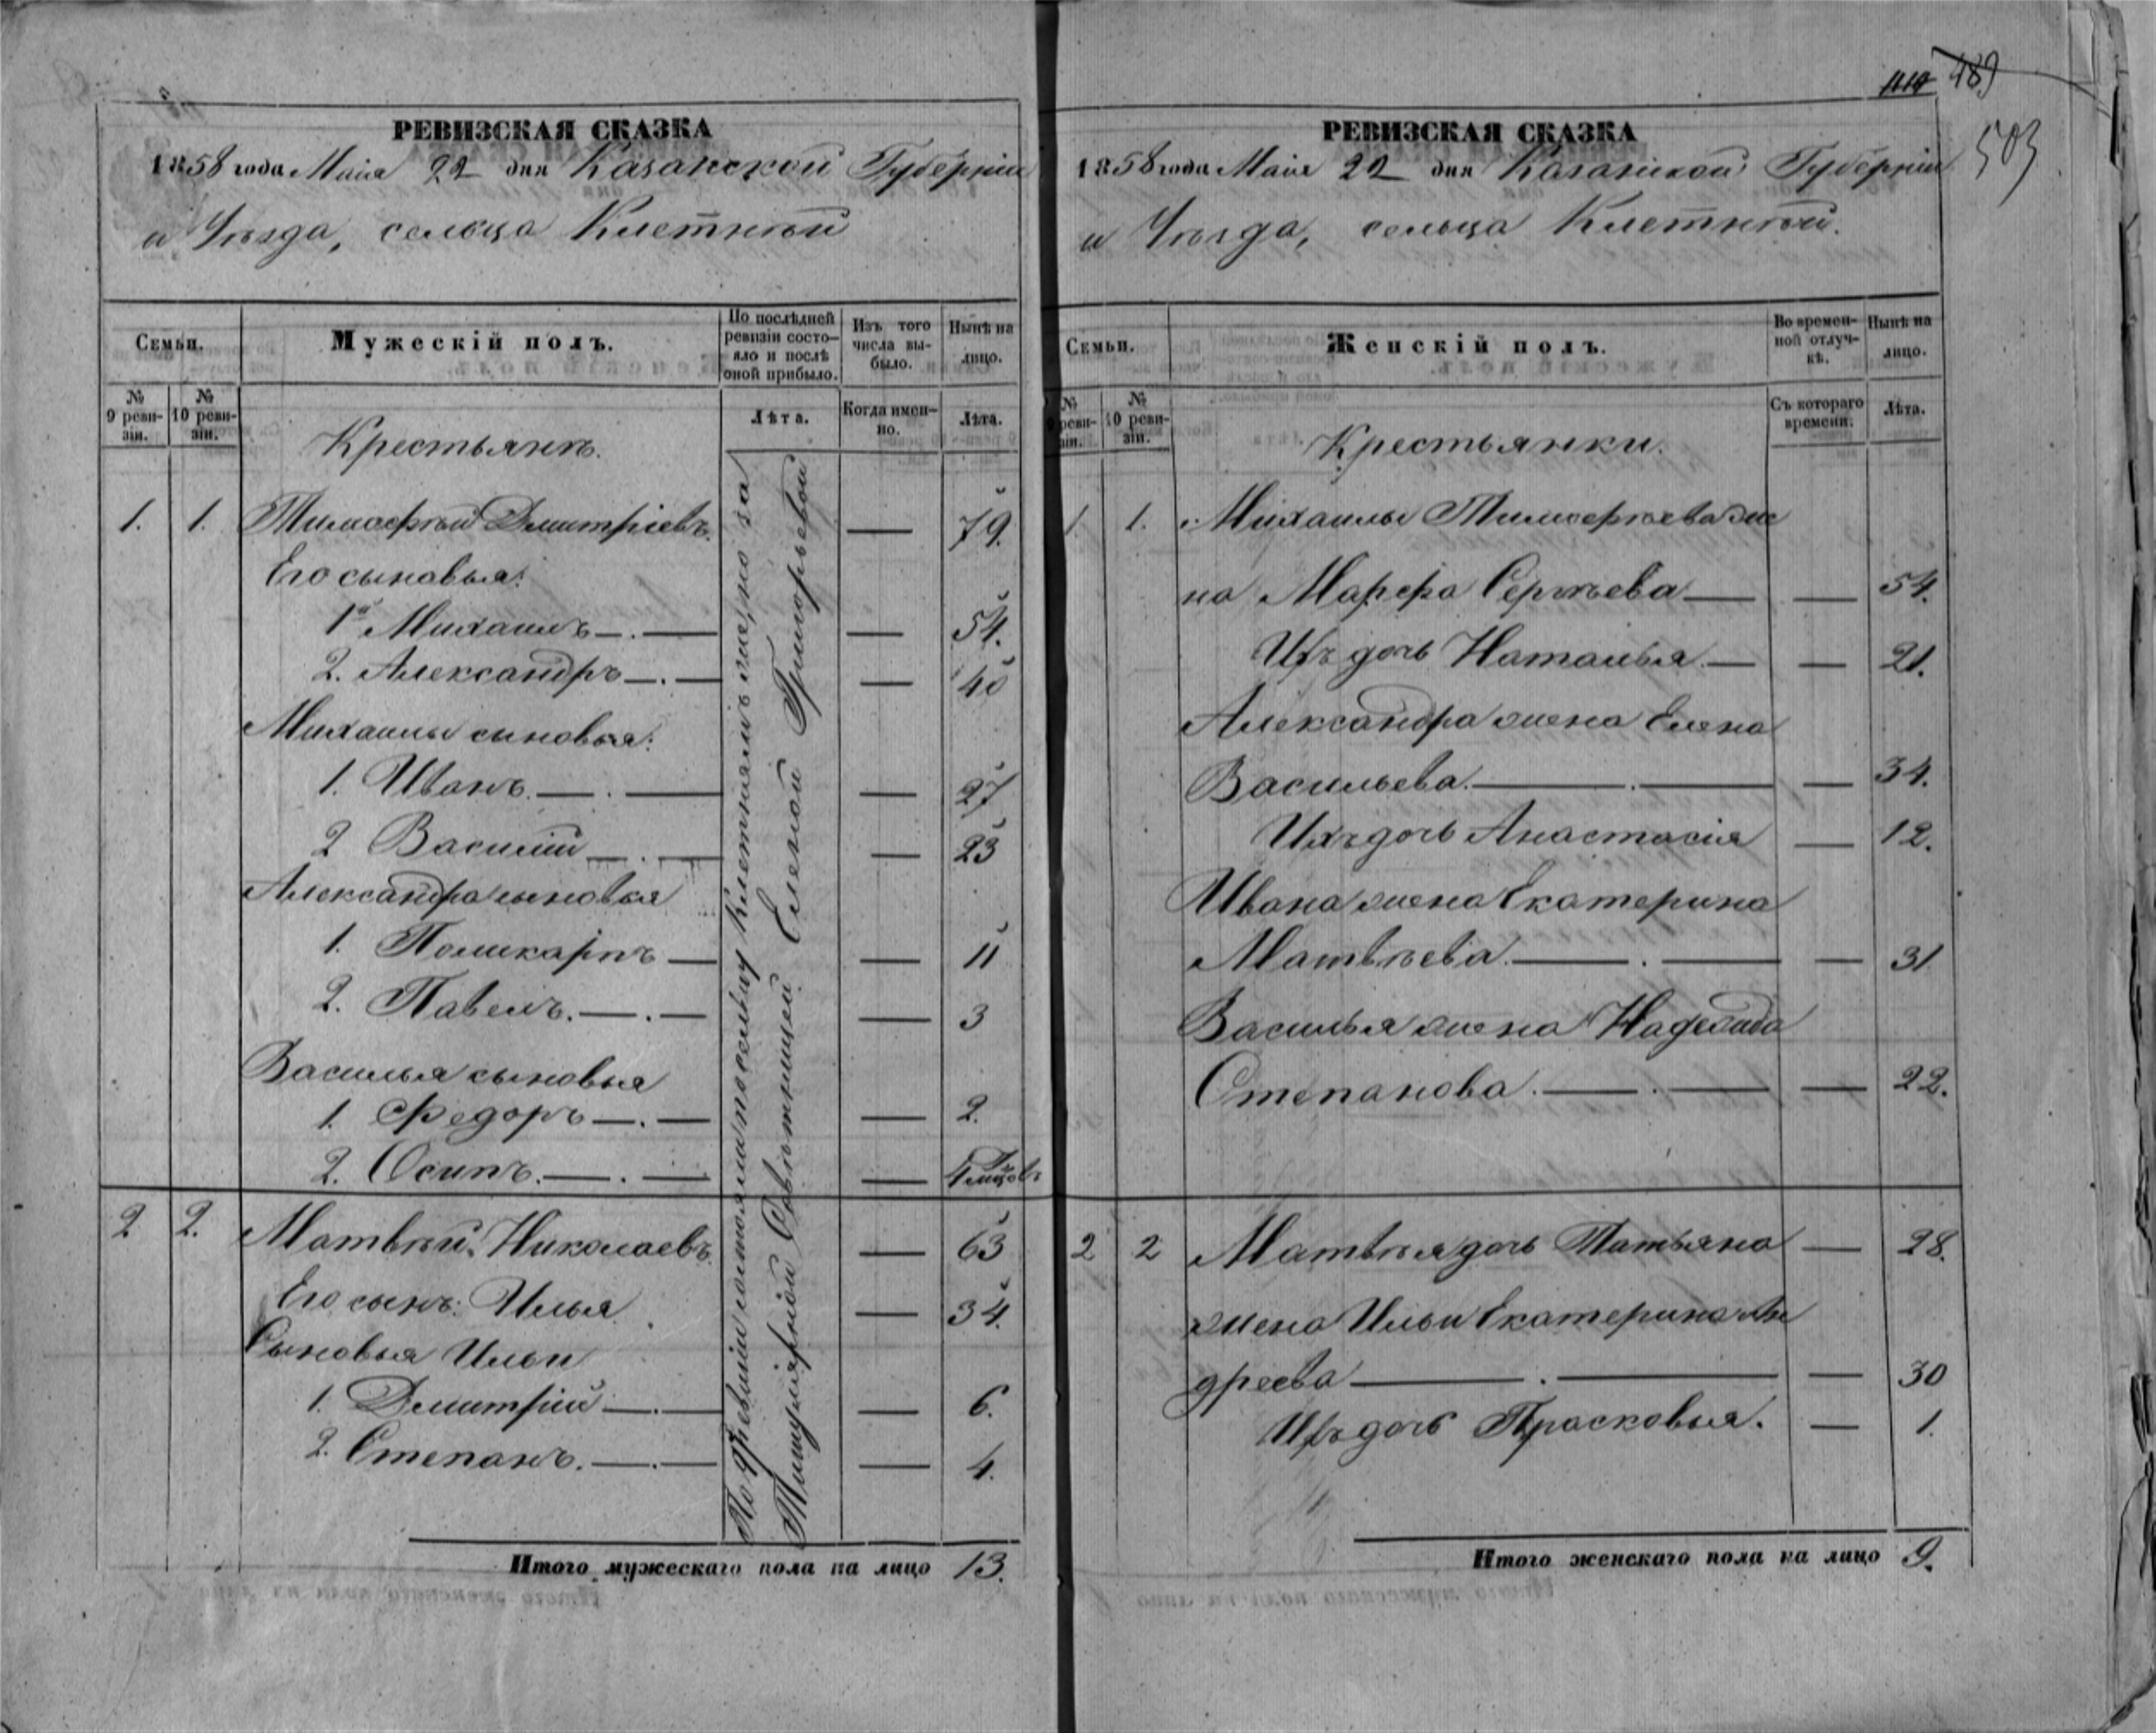 1119 489
503
РЕВИЗСКАЯ СКАЗКА
1858 года Маія 22 дня Казанской Губерніи
и Уѣзда, сельца Клетней
Семьи.
Мужескій полъ.
По послѣдней ревизіи состояло и послѣ оной прибыло.
Изъ того числа выбыло.
Нынѣ на лицо.
№ 9 ревизіи.
№ 10 ревизіи.
Лѣта.
Когда именно.
Лѣта.
Крестьянъ.
1. 1. Тимофѣй Дмитріевъ. — 79.
Его сыновья:
1й Михаилъ — 54.
2. Александръ — 40
Михаилы сыновья:
1. Иванъ. — 27
2 Василій — 23
Александра сыновья
1. Поликарпъ — 11
2. Павелъ. — 3
Василья сыновья
1. Федоръ — 2.
2. Осипъ. — 4 мѣсяцовъ
2 2. Матвѣй Николаевъ. — 63
Его сынъ: Илья — 34.
Сыновья Ильи
1. Дмитрій — 6.
2. Степанъ. — 4.
По 9 ревизіи состояли по сельцу Клетнямъ же, но за
Титулярной Совѣтницей Еленой Григорьевой
Итого мужескаго пола на лицо 13.
РЕВИЗСКАЯ СКАЗКА
1858 года Маія 22 дня Казанской Губерніи
и Уѣзда, сельца Клетней.
Семьи.
Женскій полъ.
Во временной отлучкѣ.
Нынѣ на лицо.
№ 9 ревизіи.
№ 10 ревизіи.
Съ котораго времени.
Лѣта.
Крестьянки.
1 1. Михаилы Тимофѣева же
на Марфа Сергѣева — 54.
Ихъ дочь Наталья. — 21.
Александра жена Елена
Васильева. — 34.
Ихъ дочь Анастасія — 12.
Ивана жена Екатерина
Матвѣева. — 31
Василья жена Надежда
Степанова. — 22.
2 2 Матвѣя дочь Татьяна — 28.
жена Ильи Екатерина Ан
дреева — 30
Ихъ дочь Прасковья. — 1.
Итого женскаго пола на лицо 9.